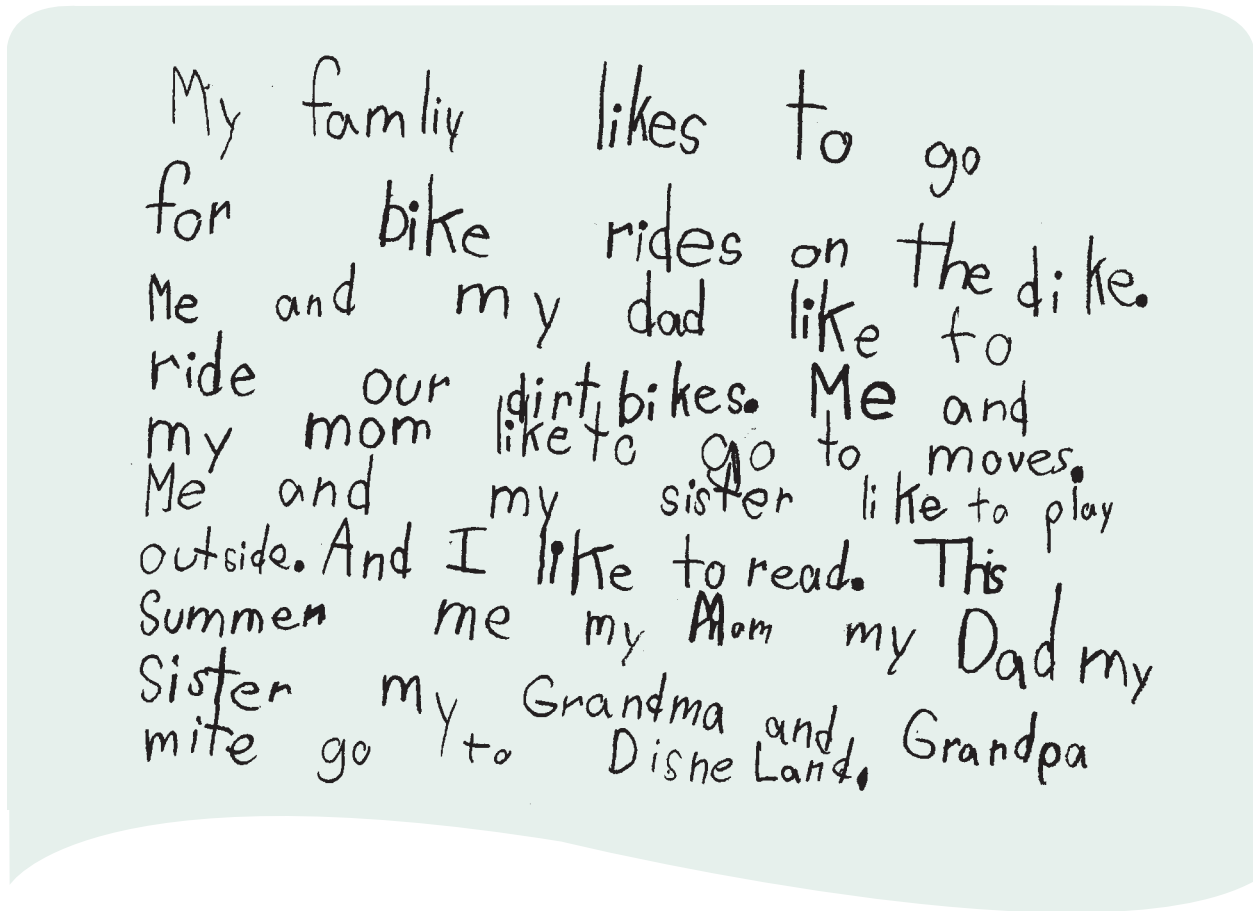 My famliy likes to go
for bike rides on the dike.
Me and my dad like to
ride our dirt bikes. Me and
my mom like to go to moves.
Me and my sister like to play
outside. And I like to read. This
Summer me my Mom my Dad my
Sister my Grandma and Grandpa
mite go to Disne Land.